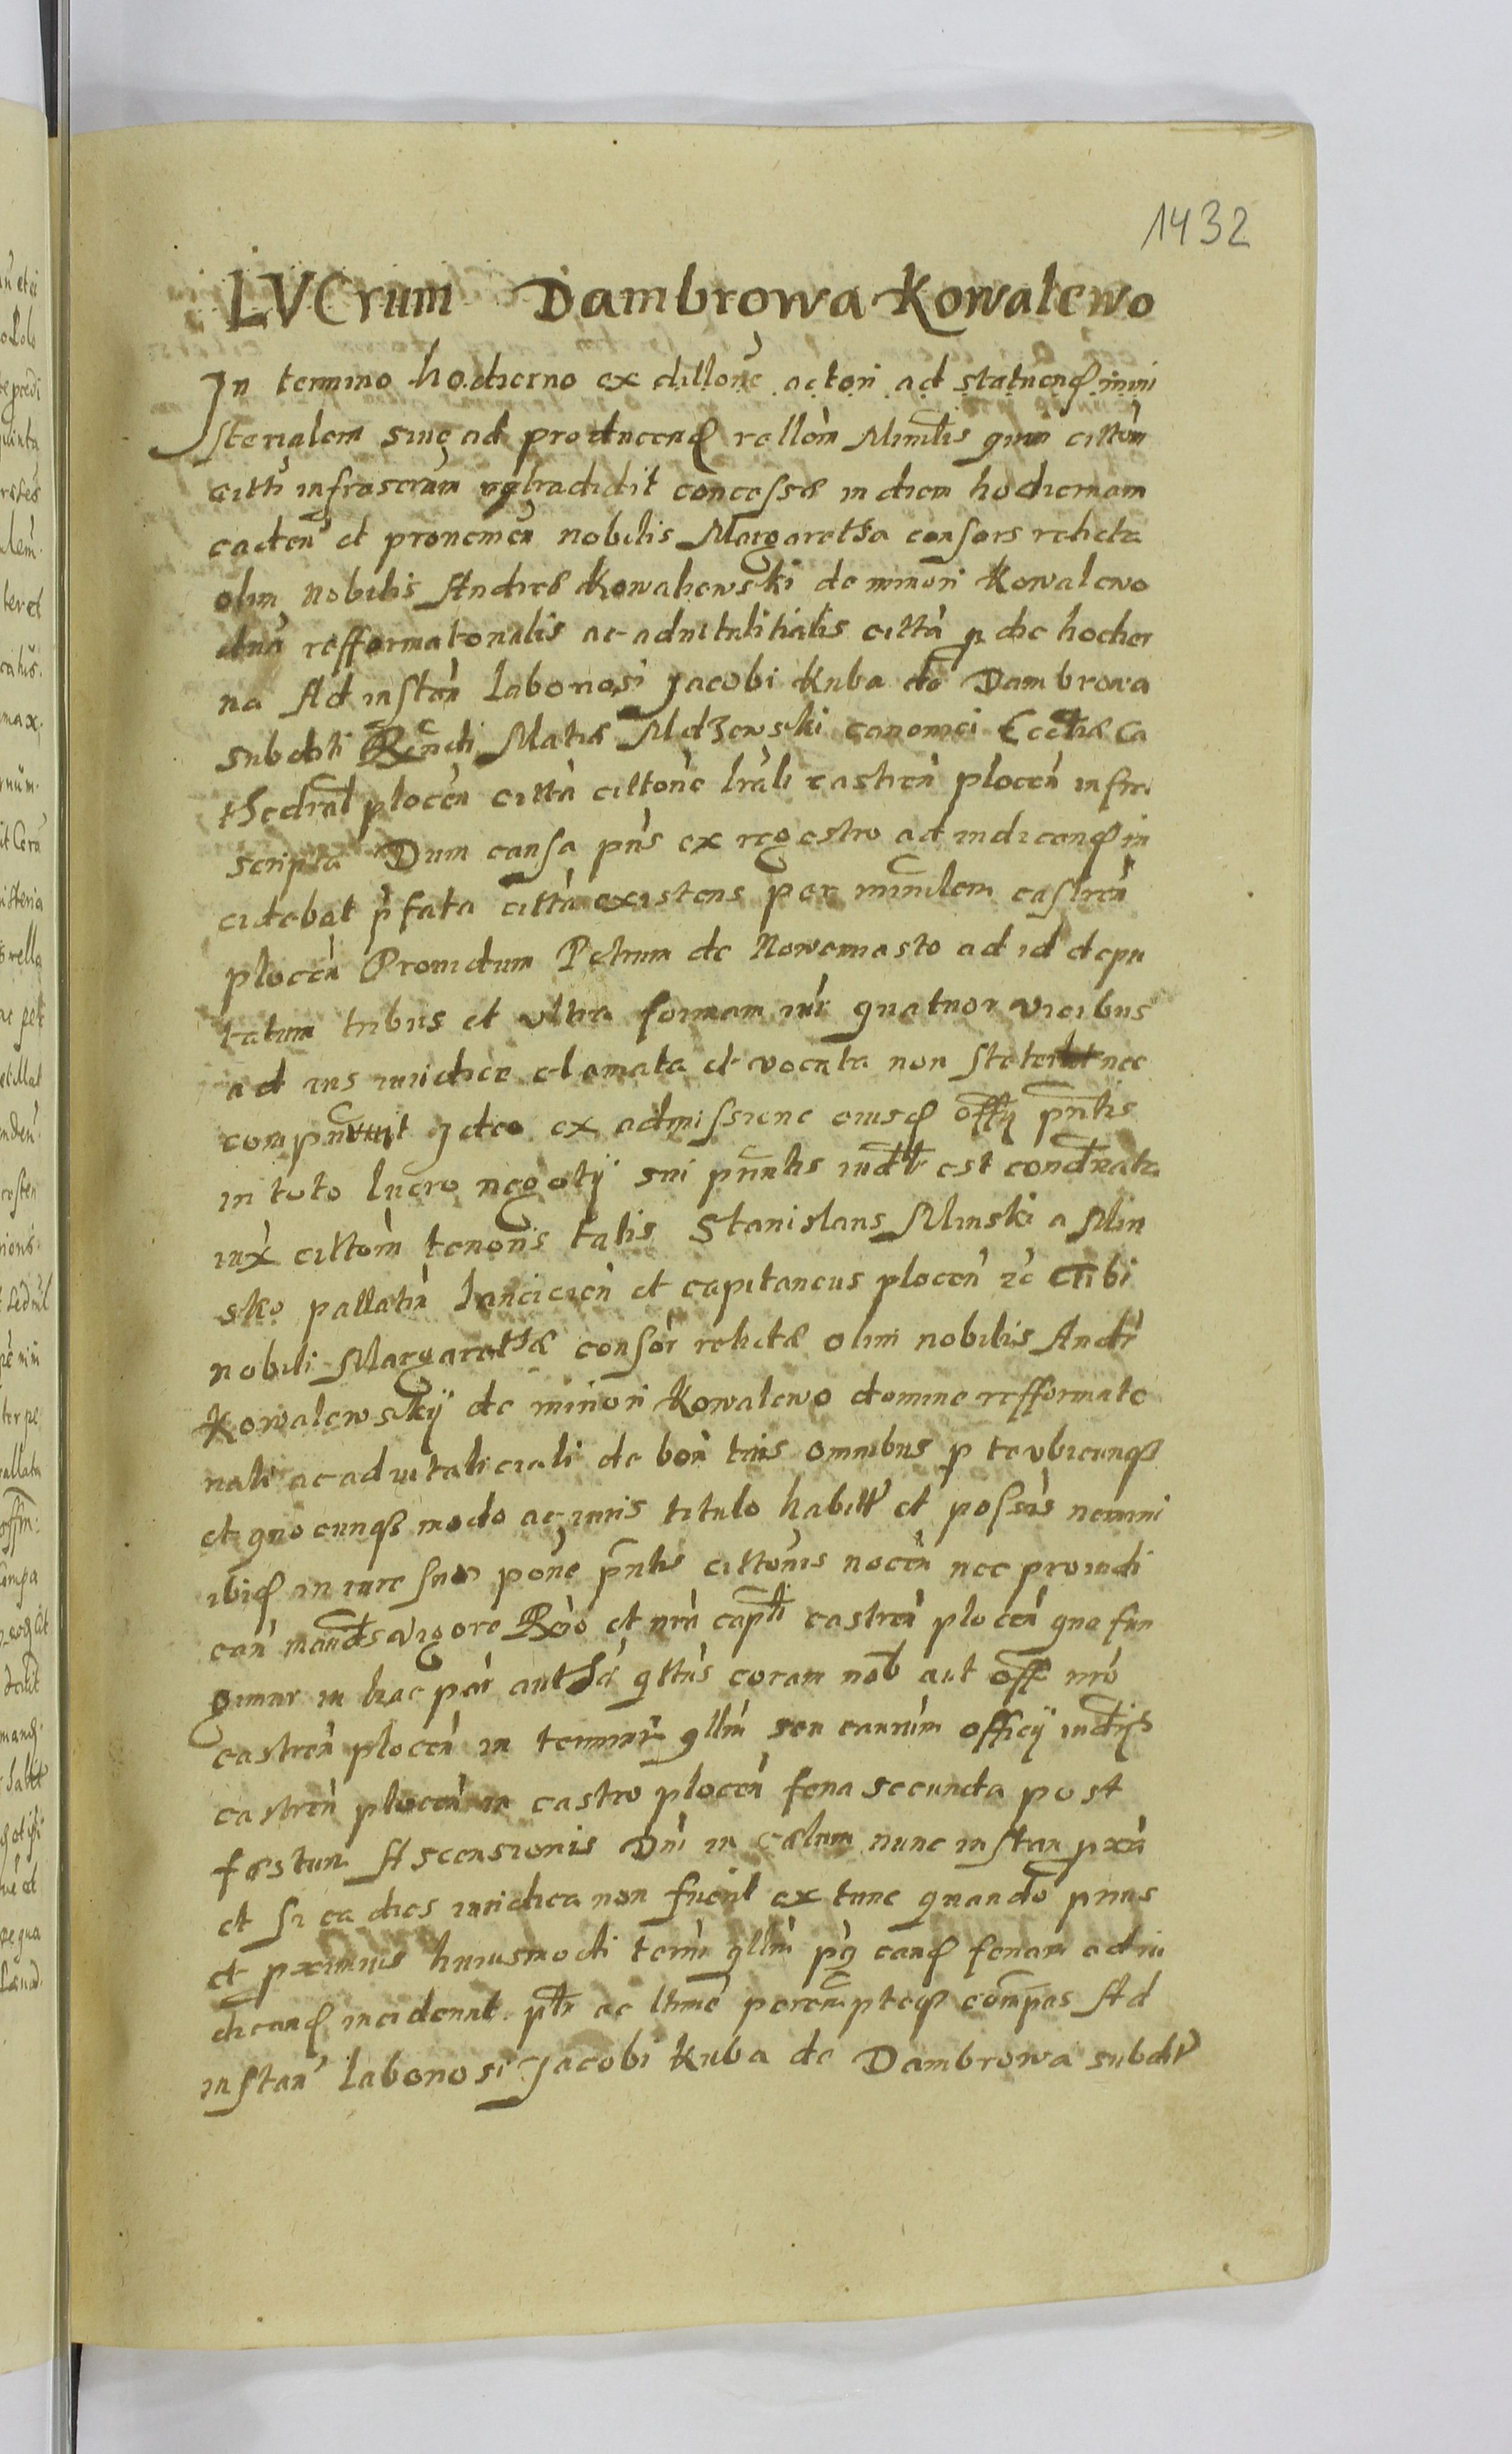 1432
LVCrum Dambrowa Kowalewo
In termino hodierno ex dillõne actori ad statuend mini
sterialem siue ad producend rellom Minilis qui cittõn
citti infrascram tradidit concessæ in diem hodiernam
caden et prouemen nobilis Margaretha consors relicta
olim Nobilis Andreæ Kowaliewski de minori Kowalewo
dna refformationalis ac aduitalitialis citta p die hodier
na Ad instan laboriosi Jacobi Kuba de Dambrowa
subditi Rndi Matiæ Mdzewski canonici Ecctiæ Ca
thedral plocen citta cittone lrali castren plocen infra
scripta Dum causa pns ex regestro ad iudicand in
cidebat pfata citta existens per minilem castren
plocen Prouidum Petrum de Nowemiasto ad id depu
tatum tribus et vltra formam iur quatuor vicibus
ad ius iuridice clamata et vocata non stetit nec
compuit Ideo ex admissione eiusd offy pntis
in toto lucro negotij sui pntis iudt est condnata
iux cittom tenoris talis Stanislaus Minski a Min
sko pallatin lancicien et capitaneus plocen &c Tibi
nobili Margarethæ consor relictæ olim nobilis Andr
Kowalewskij de minori Kowalewo domine refformatio
nali ac aduitaliciali de bon tuis omnibus p te vbicunq
et quocunq modo ac iuris titulo habitt et possis nemini
ibid in iure suo pone pntis cittonis nocen nec proiudi
can mands vigore Regio et nro capli castren plocen qua fun
gimur in hac par autha qttus coram nob aut off nro
castren plocen in termin qllm seu earum officij iudijs
castren plocen in castro plocen feria secunda post
festum Ascensionis Dni in cælum nunc instan pxa
et si ea dies iuridica non fuerit ex tunc quando prius
et pximius huiusmodi termn qllm pq eand feriam ad iu
dicand inciderint ptr ac ltime peremptoq compas Ad
instan laboriosi Jacobi Kuba de Dambrowa subdit